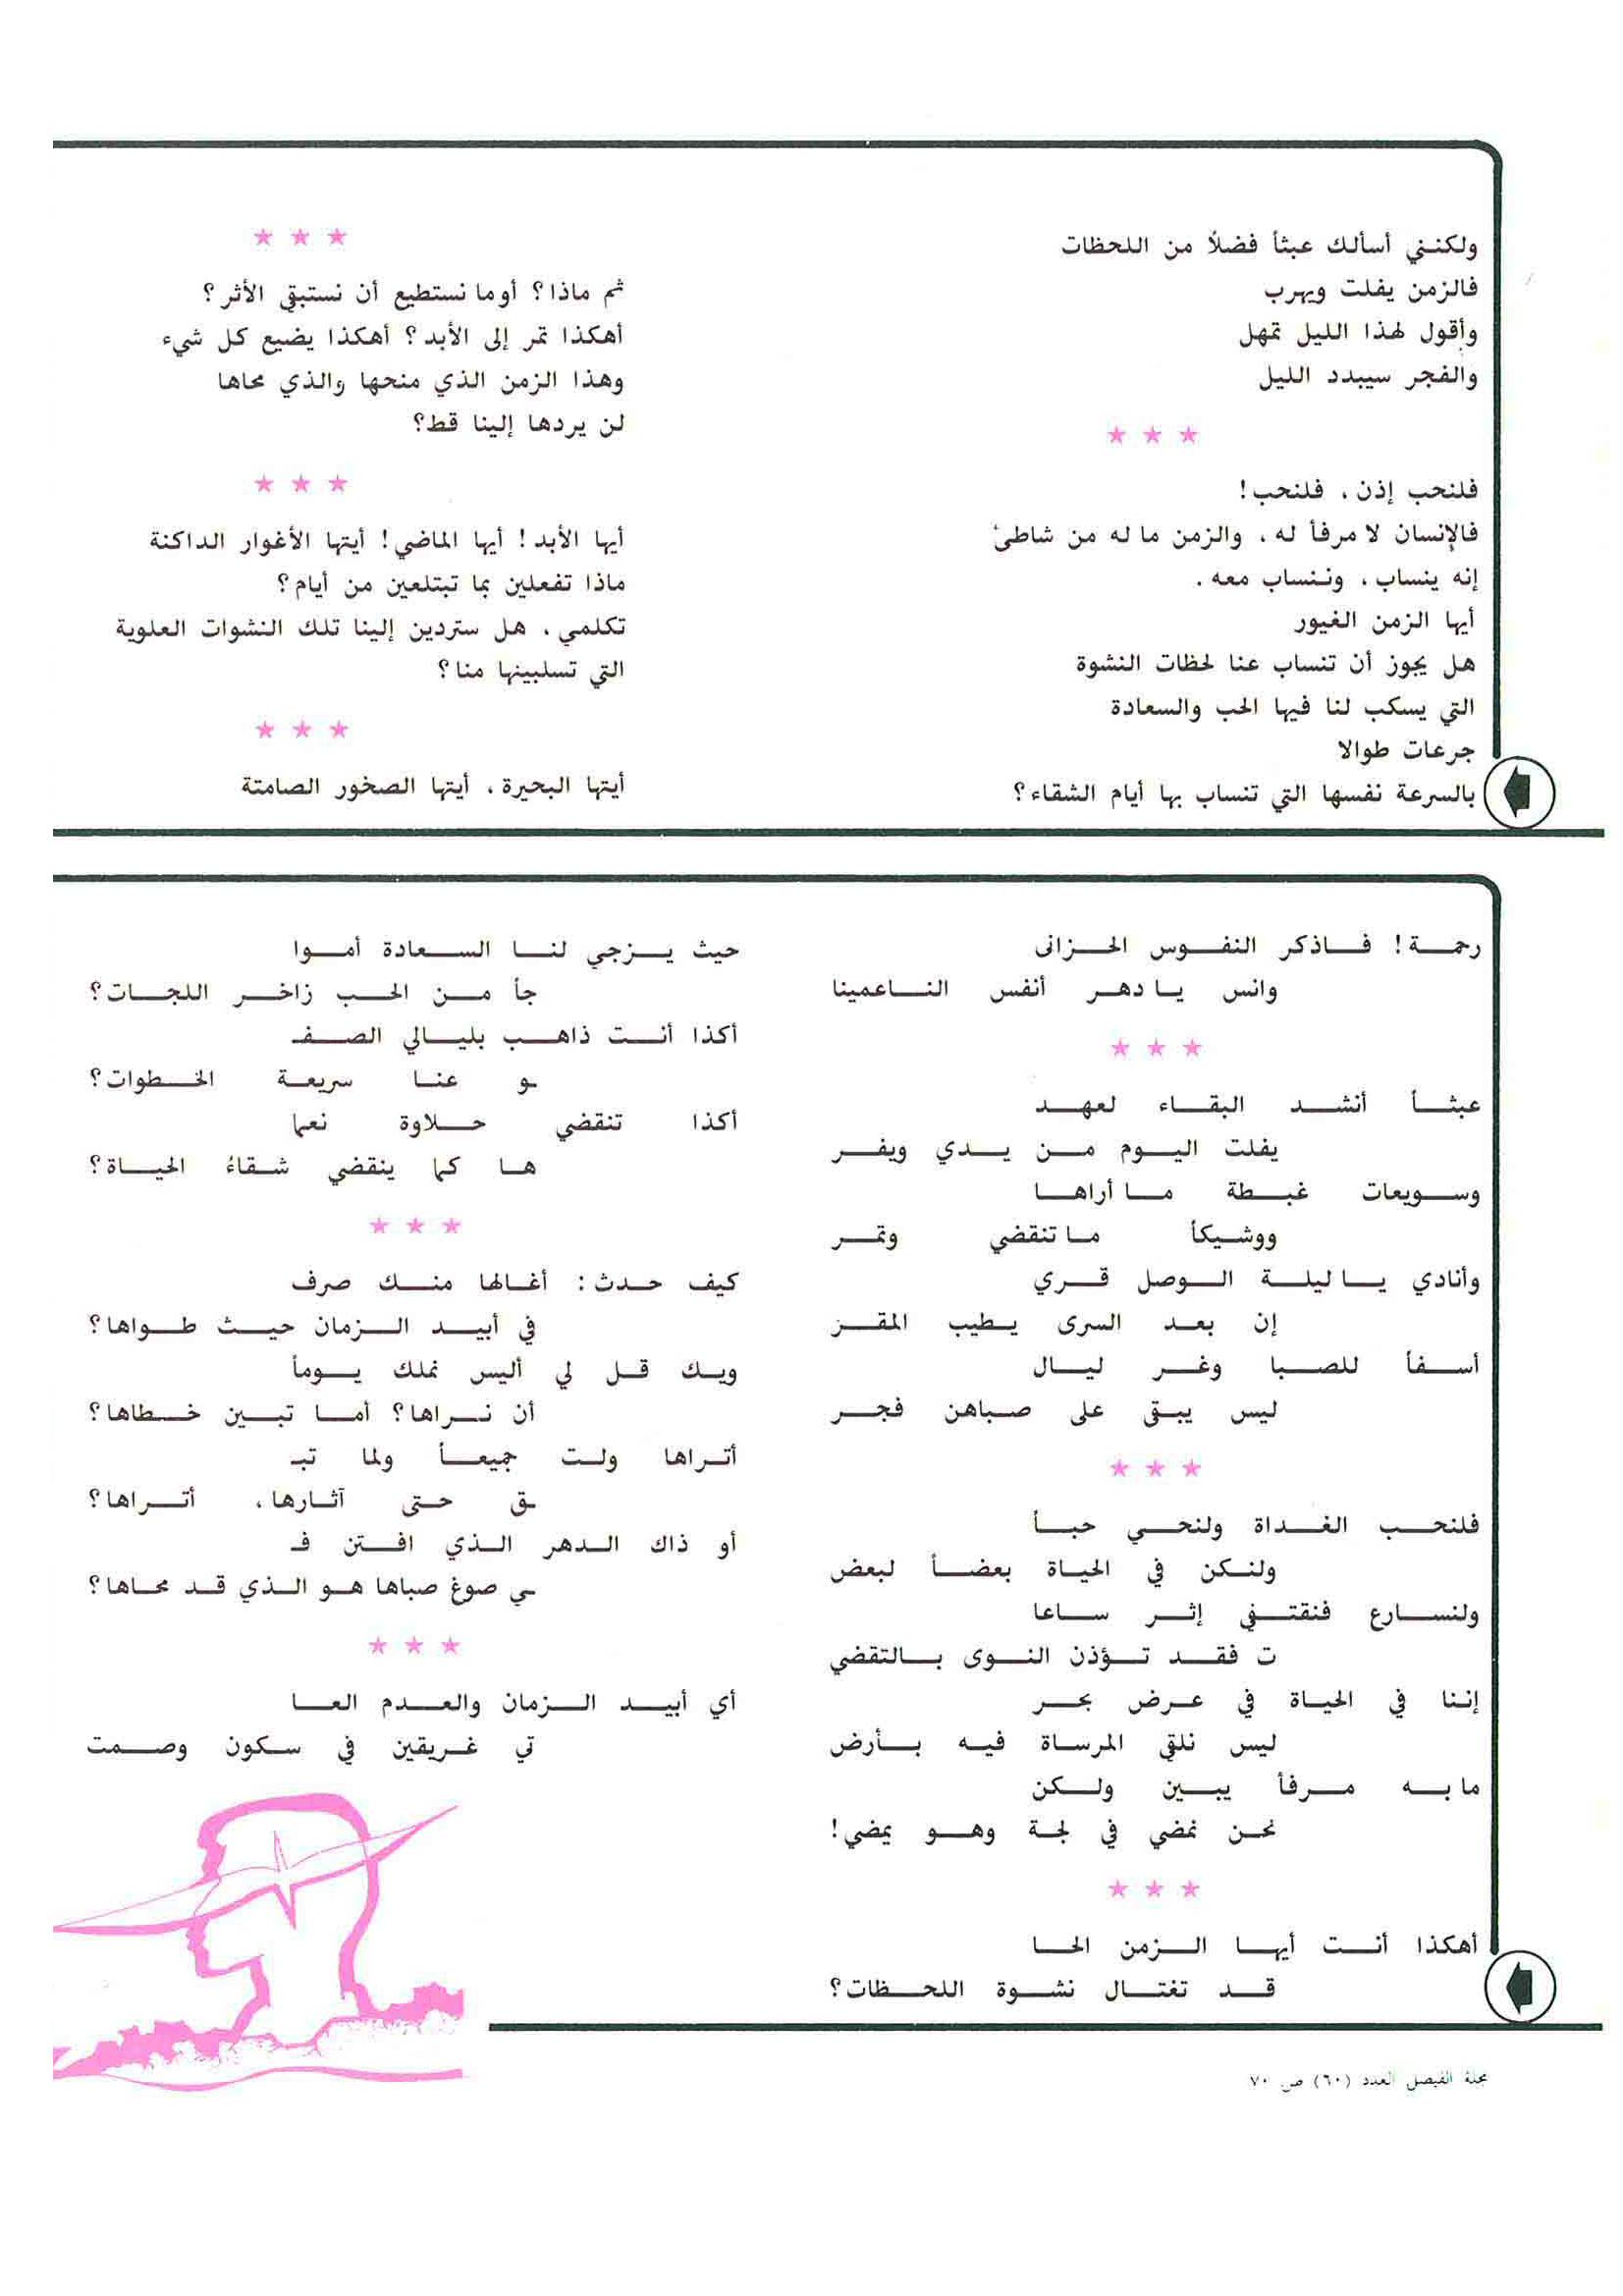 ولكنني أسألك عبثاً فضلاً من اللحظات
فالزمن يفلت ويهرب
وأقول لهذا الليل تمهل
والفجر سيبدد الليل
★ ★ ★
فلنحب إذن ، فلنحب !
فالإنسان لا مرفأ له ، والزمن ما له من شاطئ
إنه ينساب ، وننساب معه .
أيها الزمن الغيور
هل يجوز أن تنساب عنا لحظات النشوة
التي يسكب لنا فيها الحب والسعادة
جرعات طوالا
بالسرعة نفسها التي تنساب بها أيام الشقاء ؟
★ ★ ★
ثم ماذا ؟ أوما نستطيع أن نستبقي الأثر ؟
أهكذا تمر إلى الأبد ؟ أهكذا يضيع كل شيء
وهذا الزمن الذي منحها والذي محاها
لن يردها إلينا قط ؟
★ ★ ★
أيها الأبد ! أيها الماضي ! أيتها الأغوار الداكنة
ماذا تفعلين بما تبتلعين من أيام ؟
تكلمي ، هل ستردين إلينا تلك النشوات العلوية
التي تسلبينها منا ؟
★ ★ ★
أيتها البحيرة ، أيتها الصخور الصامتة
رحمـة ! فـاذكر النفـوس الحـزانى
وانس يـا دهـر أنفس النـاعمينا
★ ★ ★
عبثـاً أنشـد البقـاء لعهـد
يفلت اليـوم مـن يـدي ويفـر
وسـويعات غبـطة مـا أراهـا
ووشـيكاً مـا تنقضي وتمـر
وأنادي يـا ليلـة الـوصل قـري
إن بعـد السرى يـطيب المقـر
أسـفاً للصـبا وغـر ليـال
ليس يبـقى على صبـاهن فجـر
★ ★ ★
فلنحـب الغـداة ولنحـي حبـاً
ولنـكن في الحيـاة بعضـاً لبعض
ولنسـارع فنقتـفي إثـر سـاعا
ت فقـد تـؤذن النـوى بـالتقضي
إنـنا في الحيـاة في عـرض بحـر
ليس نلقي المرسـاة فيـه بـأرض
ما بـه مـرفأ يبـين ولـكن
نحـن نمضي في لجـة وهـو يمضي !
★ ★ ★
أهكذا أنـت أيهـا الـزمن الحـا
قـد تغتـال نشـوة اللحـظات ؟
حيث يـزجي لنـا السـعادة أمـوا
جاً مـن الحـب زاخـر اللجـات ؟
أكذا أنـت ذاهـب بليـالي الصـفـ
ـو عنـا سريعـة الخـطوات ؟
أكذا تنقضي حـلاوة نعما
هـا كما ينقضي شـقاءُ الحيـاة ؟
★ ★ ★
كيف حـدث : أغـالها منـك صرف
في أبيـد الـزمان حيـث طـواها ؟
ويـك قـل لي أليس نملك يـوماً
أن نـراها ؟ أمـا تبـين خـطاها ؟
أتـراها ولـت جميعـاً ولما تبـ
ـق حـتى آثـارها ، أتـراها ؟
أو ذاك الـدهر الـذي افـتن فـ
ـي صوغ صباها هـو الـذي قـد محـاها ؟
★ ★ ★
أي أبيـد الـزمان والعـدم العـا
تي غـريقين في سـكون وصـمت
مجلة الفيصل العدد (٦٠) ص ٧٠